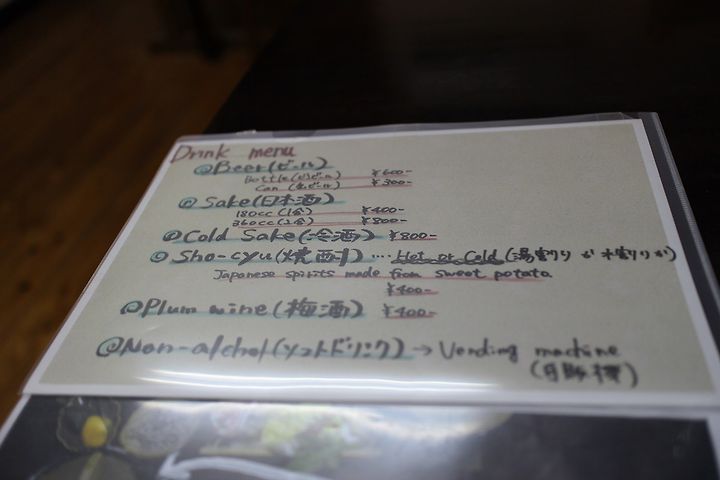 Drink menu
Beer(ビール)
Bottle(ビンビール) ¥600-
Can (缶ビール) ¥300-
Sake(日本酒)
180cc(1合) ¥400-
360cc(2合) ¥800-
Cold Sake(冷酒) ¥800-
Sho-cyu(焼酎) .... Hot or Cold (湯割りか水割りか)
Japanese spirits made from sweet potato
¥400-
Plum wine(梅酒) ¥400-
Non-alchol(ソフトドリンク) → Vending machine
(自販機)